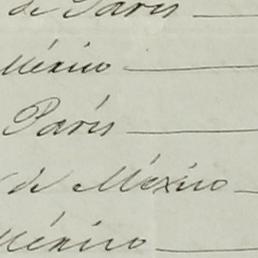 de Paris
México
París
de México
México